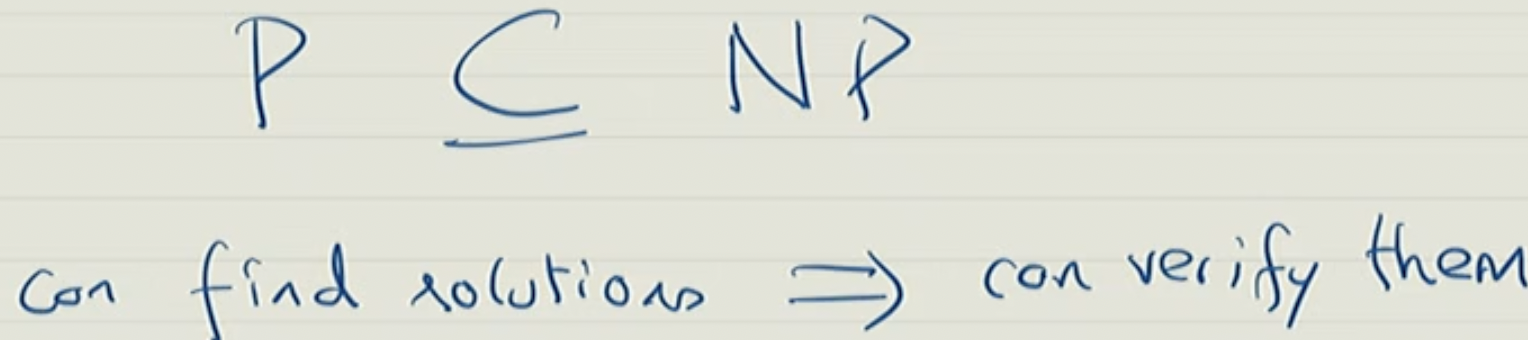 P ⊆ NP
can find solutions ⟹ can verify them